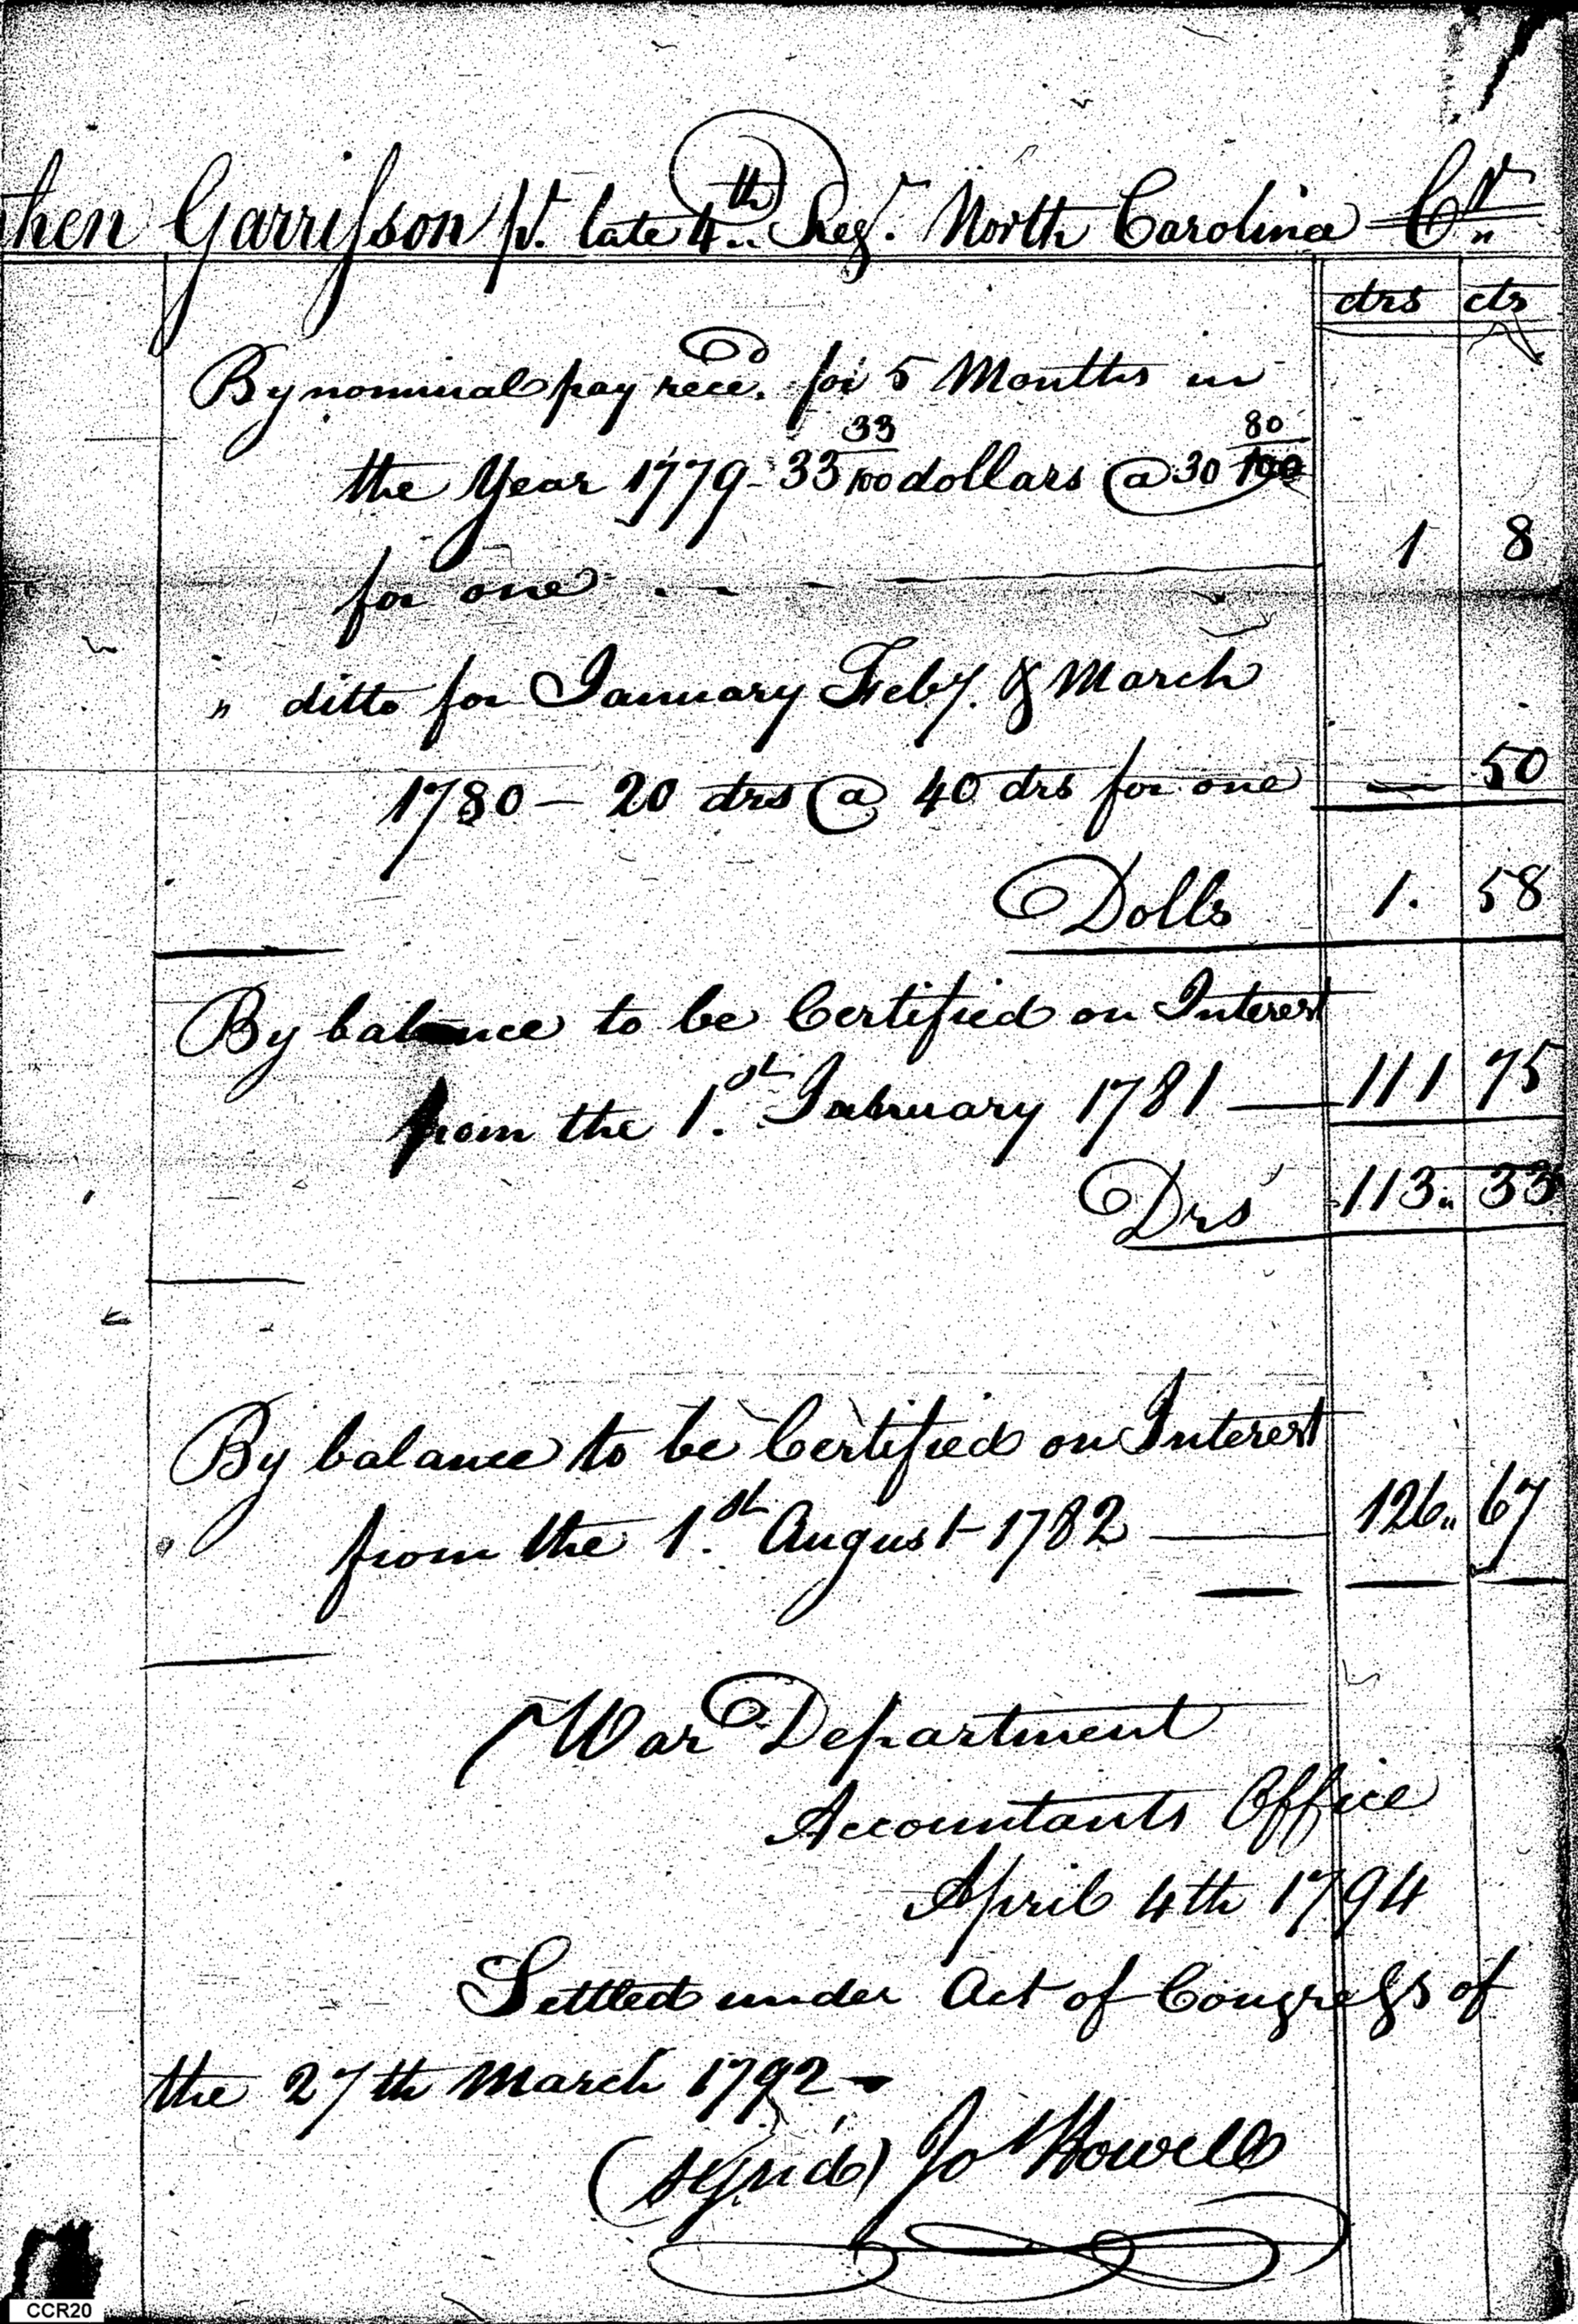 hen Garrisson pt. late 4th Regt. North Carolina Cr
drs cts
By nominal pay recd. for 5 Months in
the Year 1779 - 33 33/100 dollars @ 30 80/100
for one - - - 1 8
" ditto for January Feby. & March
1780 - 20 drs @ 40 drs for one — 50
Dolls 1. 58
By balance to be Certified on Interest
from the 1.st January 1781 — 111 75
Drs 113. 33
By balance to be Certified on Interest
from the 1.st August 1782 — 126 " 67
War Department
Accountants Office
April 4th 1794
Settled under Act of Congress of
the 27th March 1792 -
(signd) Jo Howell
CCR20